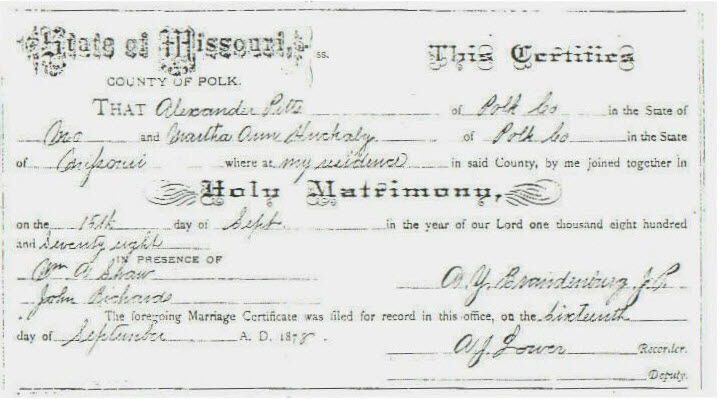 State of Missouri, ss. This Certifies
COUNTY OF POLK.
THAT Alexander Pitts of Polk Co in the State of
Mo and Martha Ann Huckaby of Polk Co in the State
of Missouri where at my residence in said County, by me joined together in
Holy Matrimony,
on the 15th day of Sept. in the year of our Lord one thousand eight hundred
and Seventy eight
IN PRESENCE OF
Wm A Shaw
A. Y. Brandenburg J.P.
John Richards
The foregoing Marriage Certificate was filed for record in this office, on the Sixteenth
day of September A. D. 1878.
A. J. Lower Recorder.
Deputy.